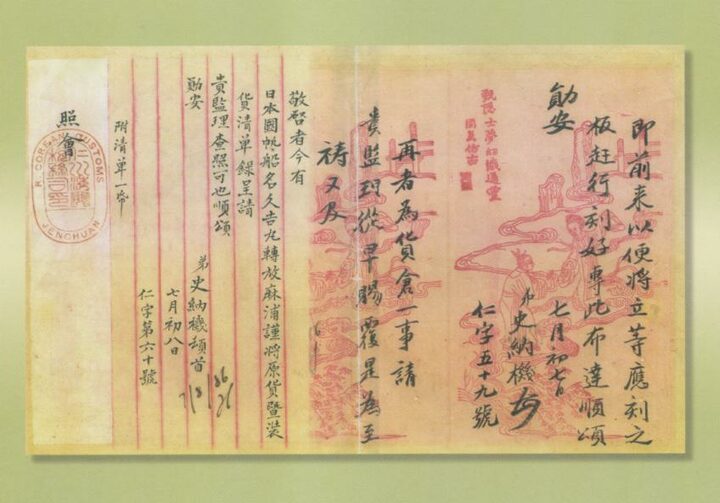 即前来以便將立等應刻之
板赶行刻好專此布達順頌
勛安
七月初七日
弟史納機
仁字五十九號
甄隱士夢幻識通靈
再者為貨倉一事請
貴監理從早賜覆是為至
祷又及
敬啓者今有
日本國帆船名久吉丸轉放麻浦謹將原貨曁装
貨清单錄呈請
貴監理查照可也順頌
勛安
弟史納機頓首
七月初八日
仁字第六十號
附清单一帋
照會
H. COREAN CUSTOMS
JENCHUAN